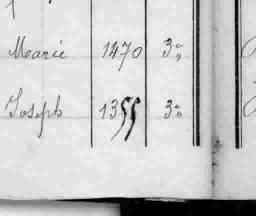 Marie 1470 3e
Joseph 1355 3e